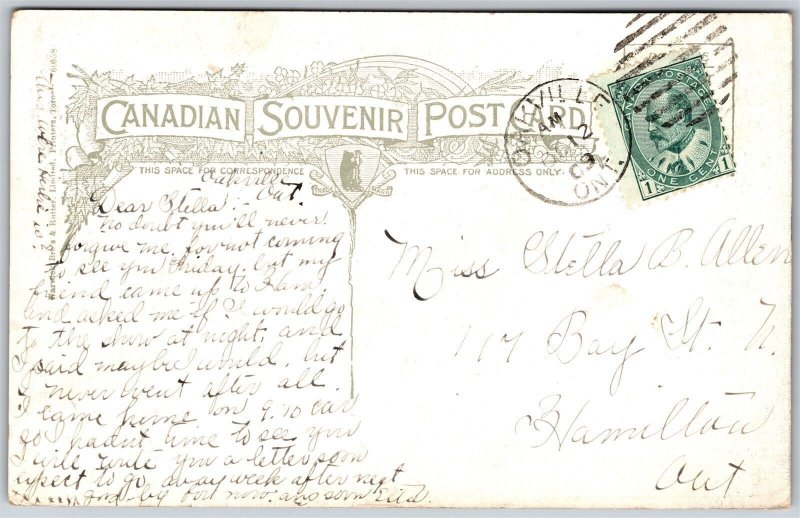 CANADIAN SOUVENIR POST CARD
THIS SPACE FOR CORRESPONDENCE
THIS SPACE FOR ADDRESS ONLY
OAKVILLE
AM
12
09
ONT.
POSTAGE
ONE CENT
1 1
Oakville
Ont.
Dear Stella:-
No doubt you'll never
forgive me for not coming
to see you Friday, but my
friend came up to Ham.
and asked me if I would go
to the show at night, and
I said maybe I would, but
I never went after all.
I came home on 9.10 car
so I hadn't time to see you
I will write you a letter soon
expect to go away week after next
good-by for now. ans soon
Miss Stella B. Allen
117 Bay St. N.
Hamilton
Ont